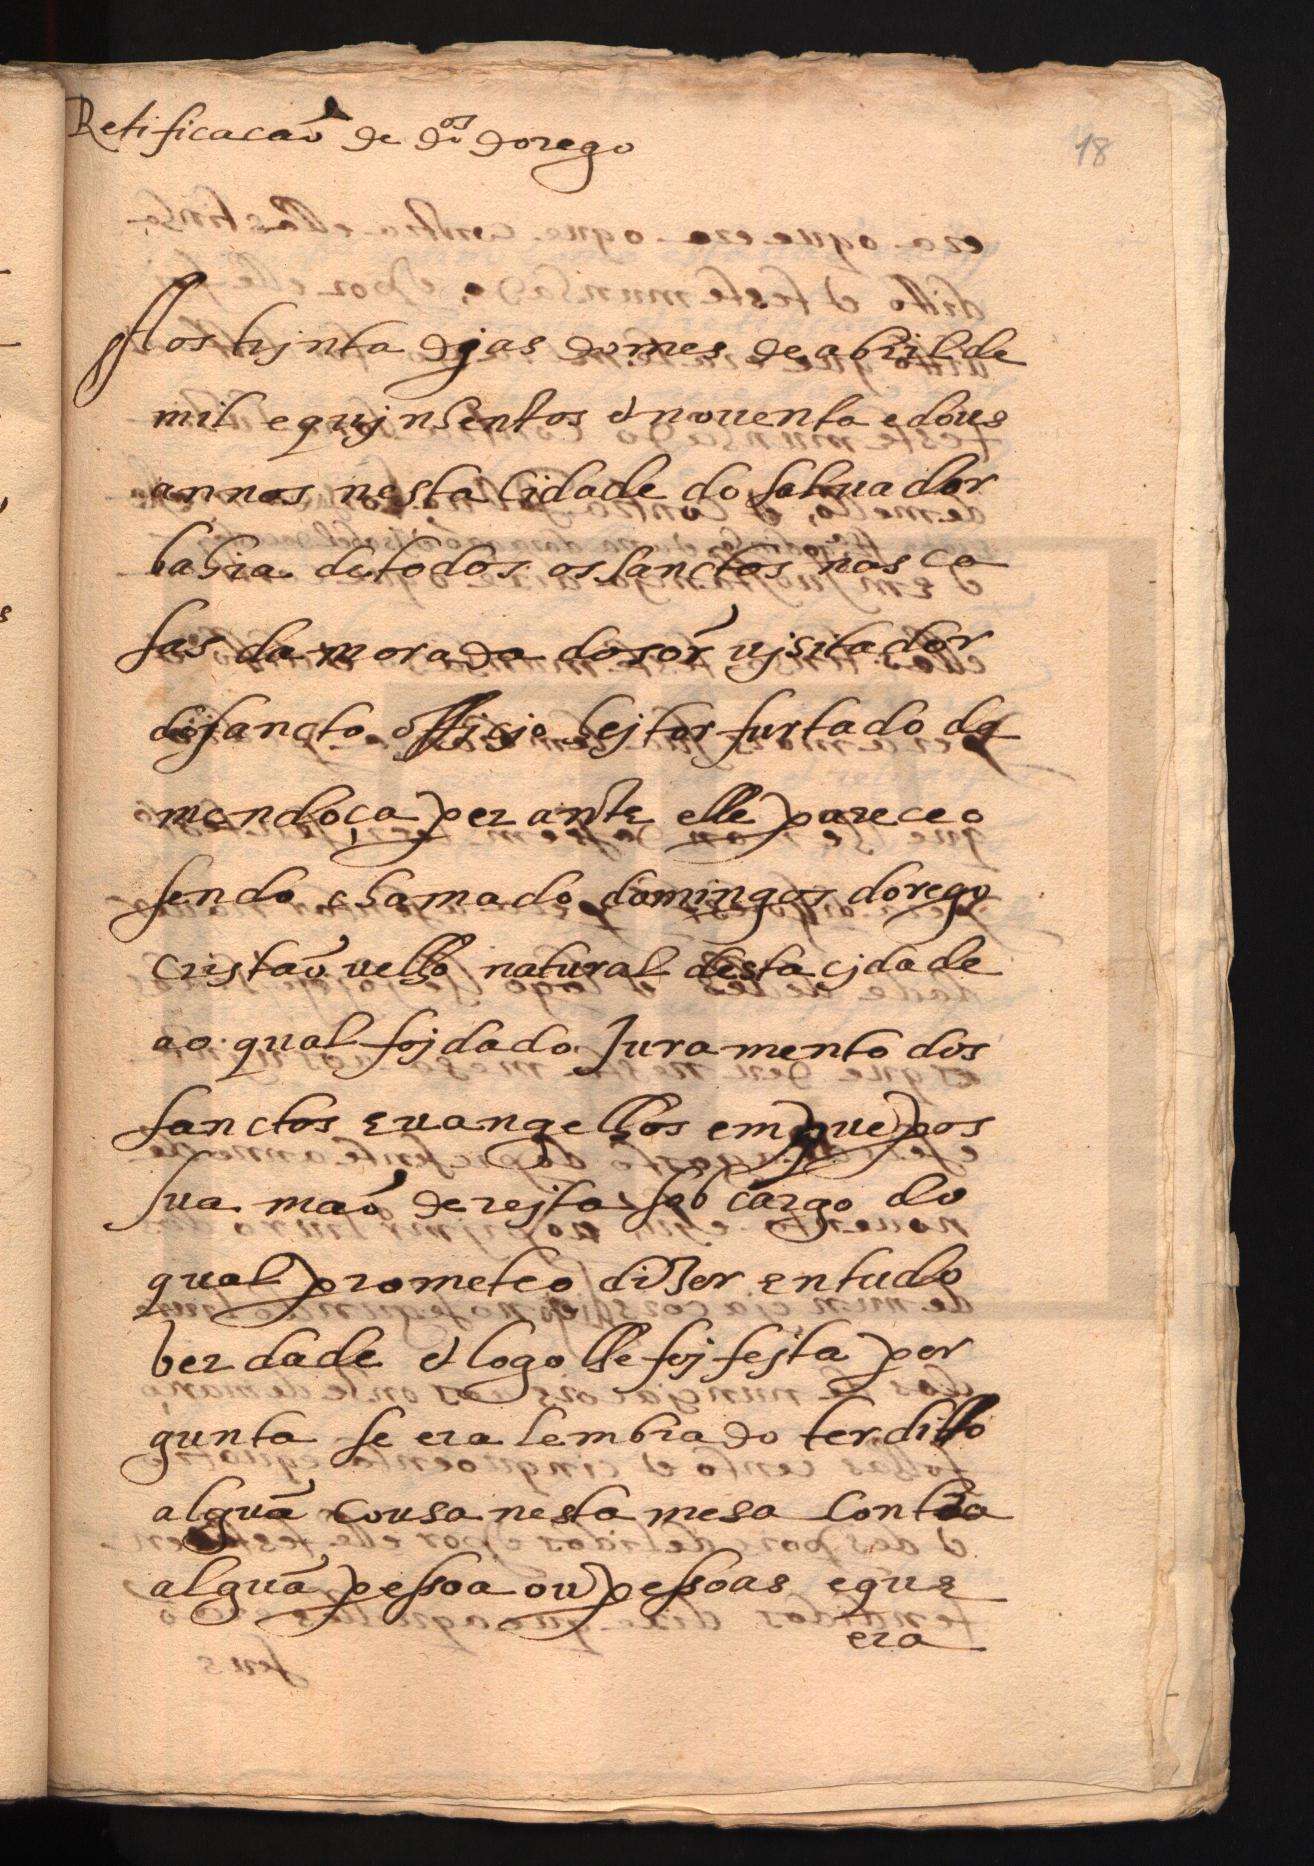 Retificacaõ de Dos dorego
18
Aos trjnta djas domes de abril de
mil e qujnhentos e nouenta e dous
annos nesta Cidade do saluador
bahia de todos os sanctos nas ca
sas da morada do sor ujsitador
do sancto officio hejtor furtado da
mendoça perante elle pareceo
sendo chamado domingos dorego
cristaõ uelho natural desta cjdade
ao qual foj dado Juramento dos
sanctos euangelhos em que pos
sua maõ derejta sob cargo do
qual prometeo dizer en tudo
berdade e logo lhe foj fejta per
gunta se era lembrado ter ditto
alguã cousa nesta mesa Contra
alguã pessoa ou pessoas e que
era